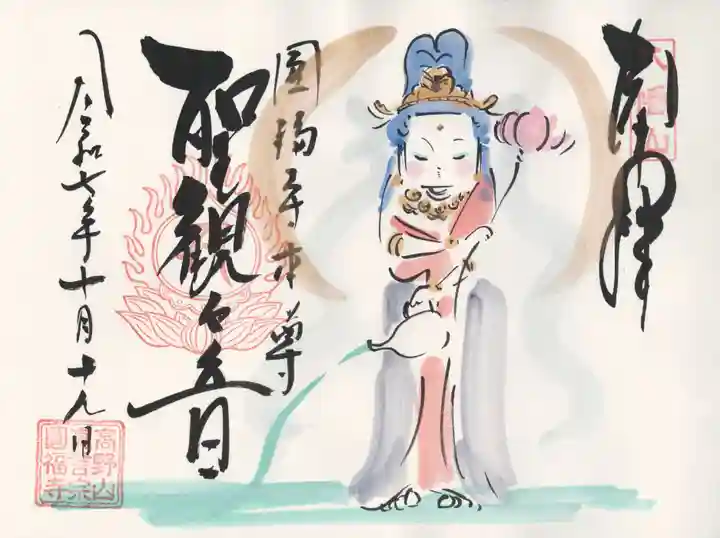 圓福寺本尊
聖観世音
令和七年十月十九日
高野山
真言宗
圓福寺